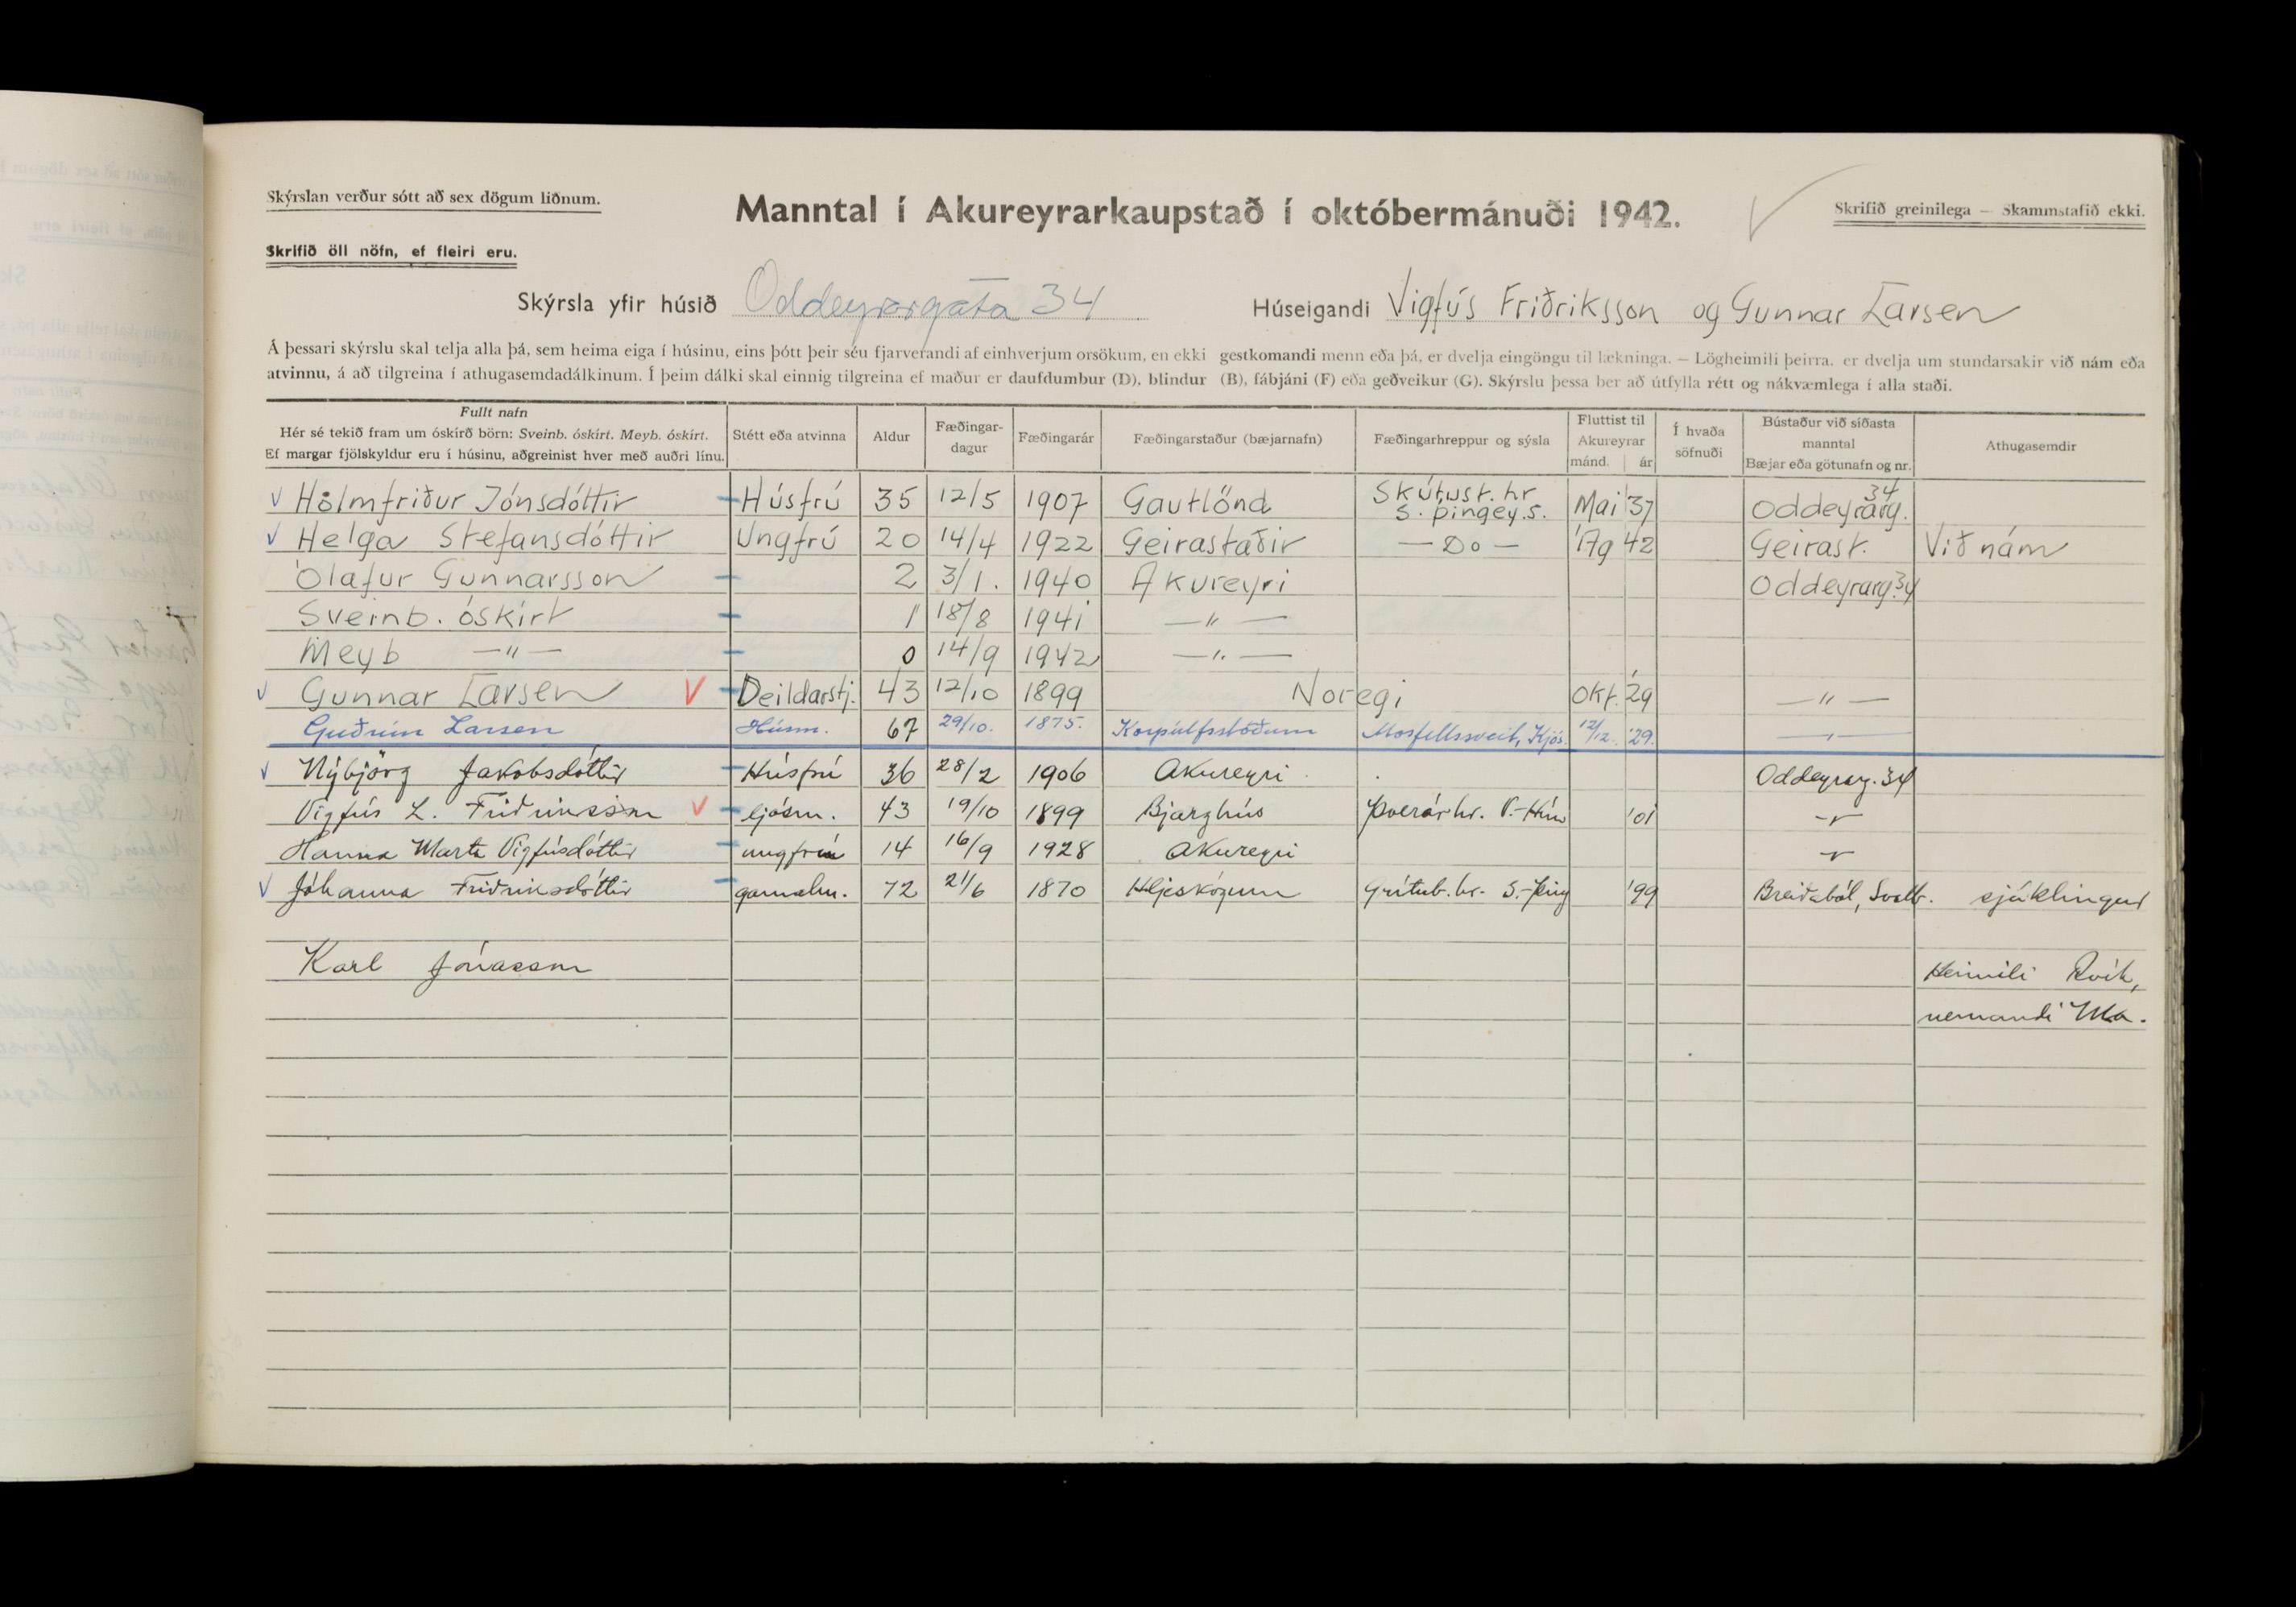 Skýrslan verður sótt að sex dögum liðnum.
Manntal í Akureyrarkaupstað í októbermánuði 1942.
Skrifið greinilega — Skammstafið ekki.
Skrifið öll nöfn, ef fleiri eru.
Skýrsla yfir húsið Oddeyrargata 34 Húseigandi Vigfús Friðriksson og Gunnar Larsen
Á þessari skýrslu skal telja alla þá, sem heima eiga í húsinu, eins þótt þeir séu fjarverandi af einhverjum orsökum, en ekki gestkomandi menn eða þá, er dvelja eingöngu til lækninga. — Lögheimili þeirra. er dvelja um stundarsakir við nám eða
atvinnu, á að tilgreina í athugasemdadálkinum. Í þeim dálki skal einnig tilgreina ef maður er daufdumbur (D), blindur (B), fábjáni (F) eða geðveikur (G). Skýrslu þessa ber að útfylla rétt og nákvæmlega í alla staði.
Fullt nafn
Hér sé tekið fram um óskírð börn: Sveinb. óskírt. Meyb. óskírt.
Ef margar fjölskyldur eru í húsinu, aðgreinist hver með auðri línu.
Stétt eða atvinna
Aldur
Fæðingar-
dagur
Fæðingarár
Fæðingarstaður (bæjarnafn)
Fæðingarhreppur og sýsla
Fluttist til
Akureyrar
mánd. ár
Í hvaða
söfnuði
Bústaður við síðasta
manntal
Bæjar eða götunafn og nr.
Athugasemdir
√ Hólmfriður Jónsdóttir Húsfrú 35 12/5 1907 Gautlönd Skútust. hr. S. þingey.s. Mai 37 Oddeyrarg. 34
√ Helga Stefansdóttir Ungfrú 20 14/4 1922 Geirastaðir — Do — Ág 42 Geirast. Við nám
Ólafur Gunnarsson 2 3/1. 1940 Akureyri Oddeyrarg. 34
Sveinb. óskírt 1 18/8 1941 — " —
Meyb — " — 0 14/9 1942 — " —
√ Gunnar Larsen √ Deildarstj. 43 12/10 1899 Noregi Okt. 29 — " —
Guðrún Larsen Húsm. 67 29/10. 1875. Korpúlfsstöðum Mosfellssveit, Kjós. 12/12. '29. — " —
√ Nýbjörg Jakobsdóttir Húsfrú 36 28/2 1906 Akureyri Oddeyrarg. 34
Vigfús L. Friðriksson √ ljósm. 43 19/10 1899 Bjarghús Þverárhr. V.-Hún '01 — " —
Hanna Marta Vigfúsdóttir ungfrú 14 16/9 1928 Akureyri — " —
√ Jóhanna Friðriksdóttir gamalm. 72 21/6 1870 Hljeskógum Grítub. hr. S.-Þing '99 Breiðaból, Svalb. sjúklingur
Karl Jónasson Heimili Rvík,
nemandi Ma.